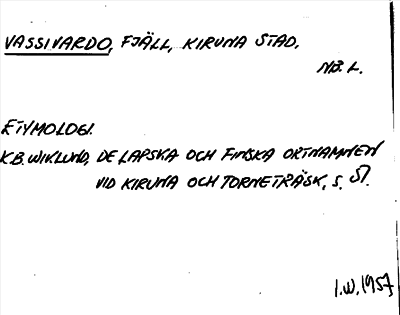 VASSIVARDO, FJÄLL, KIRUNA STAD,
NB. L.
ETYMOLOGI.
K.B. WIKLUND, DE LAPSKA OCH FINSKA ORTNAMNEN
VID KIRUNA OCH TORNETRÄSK, S. 51.
I.W. 1957